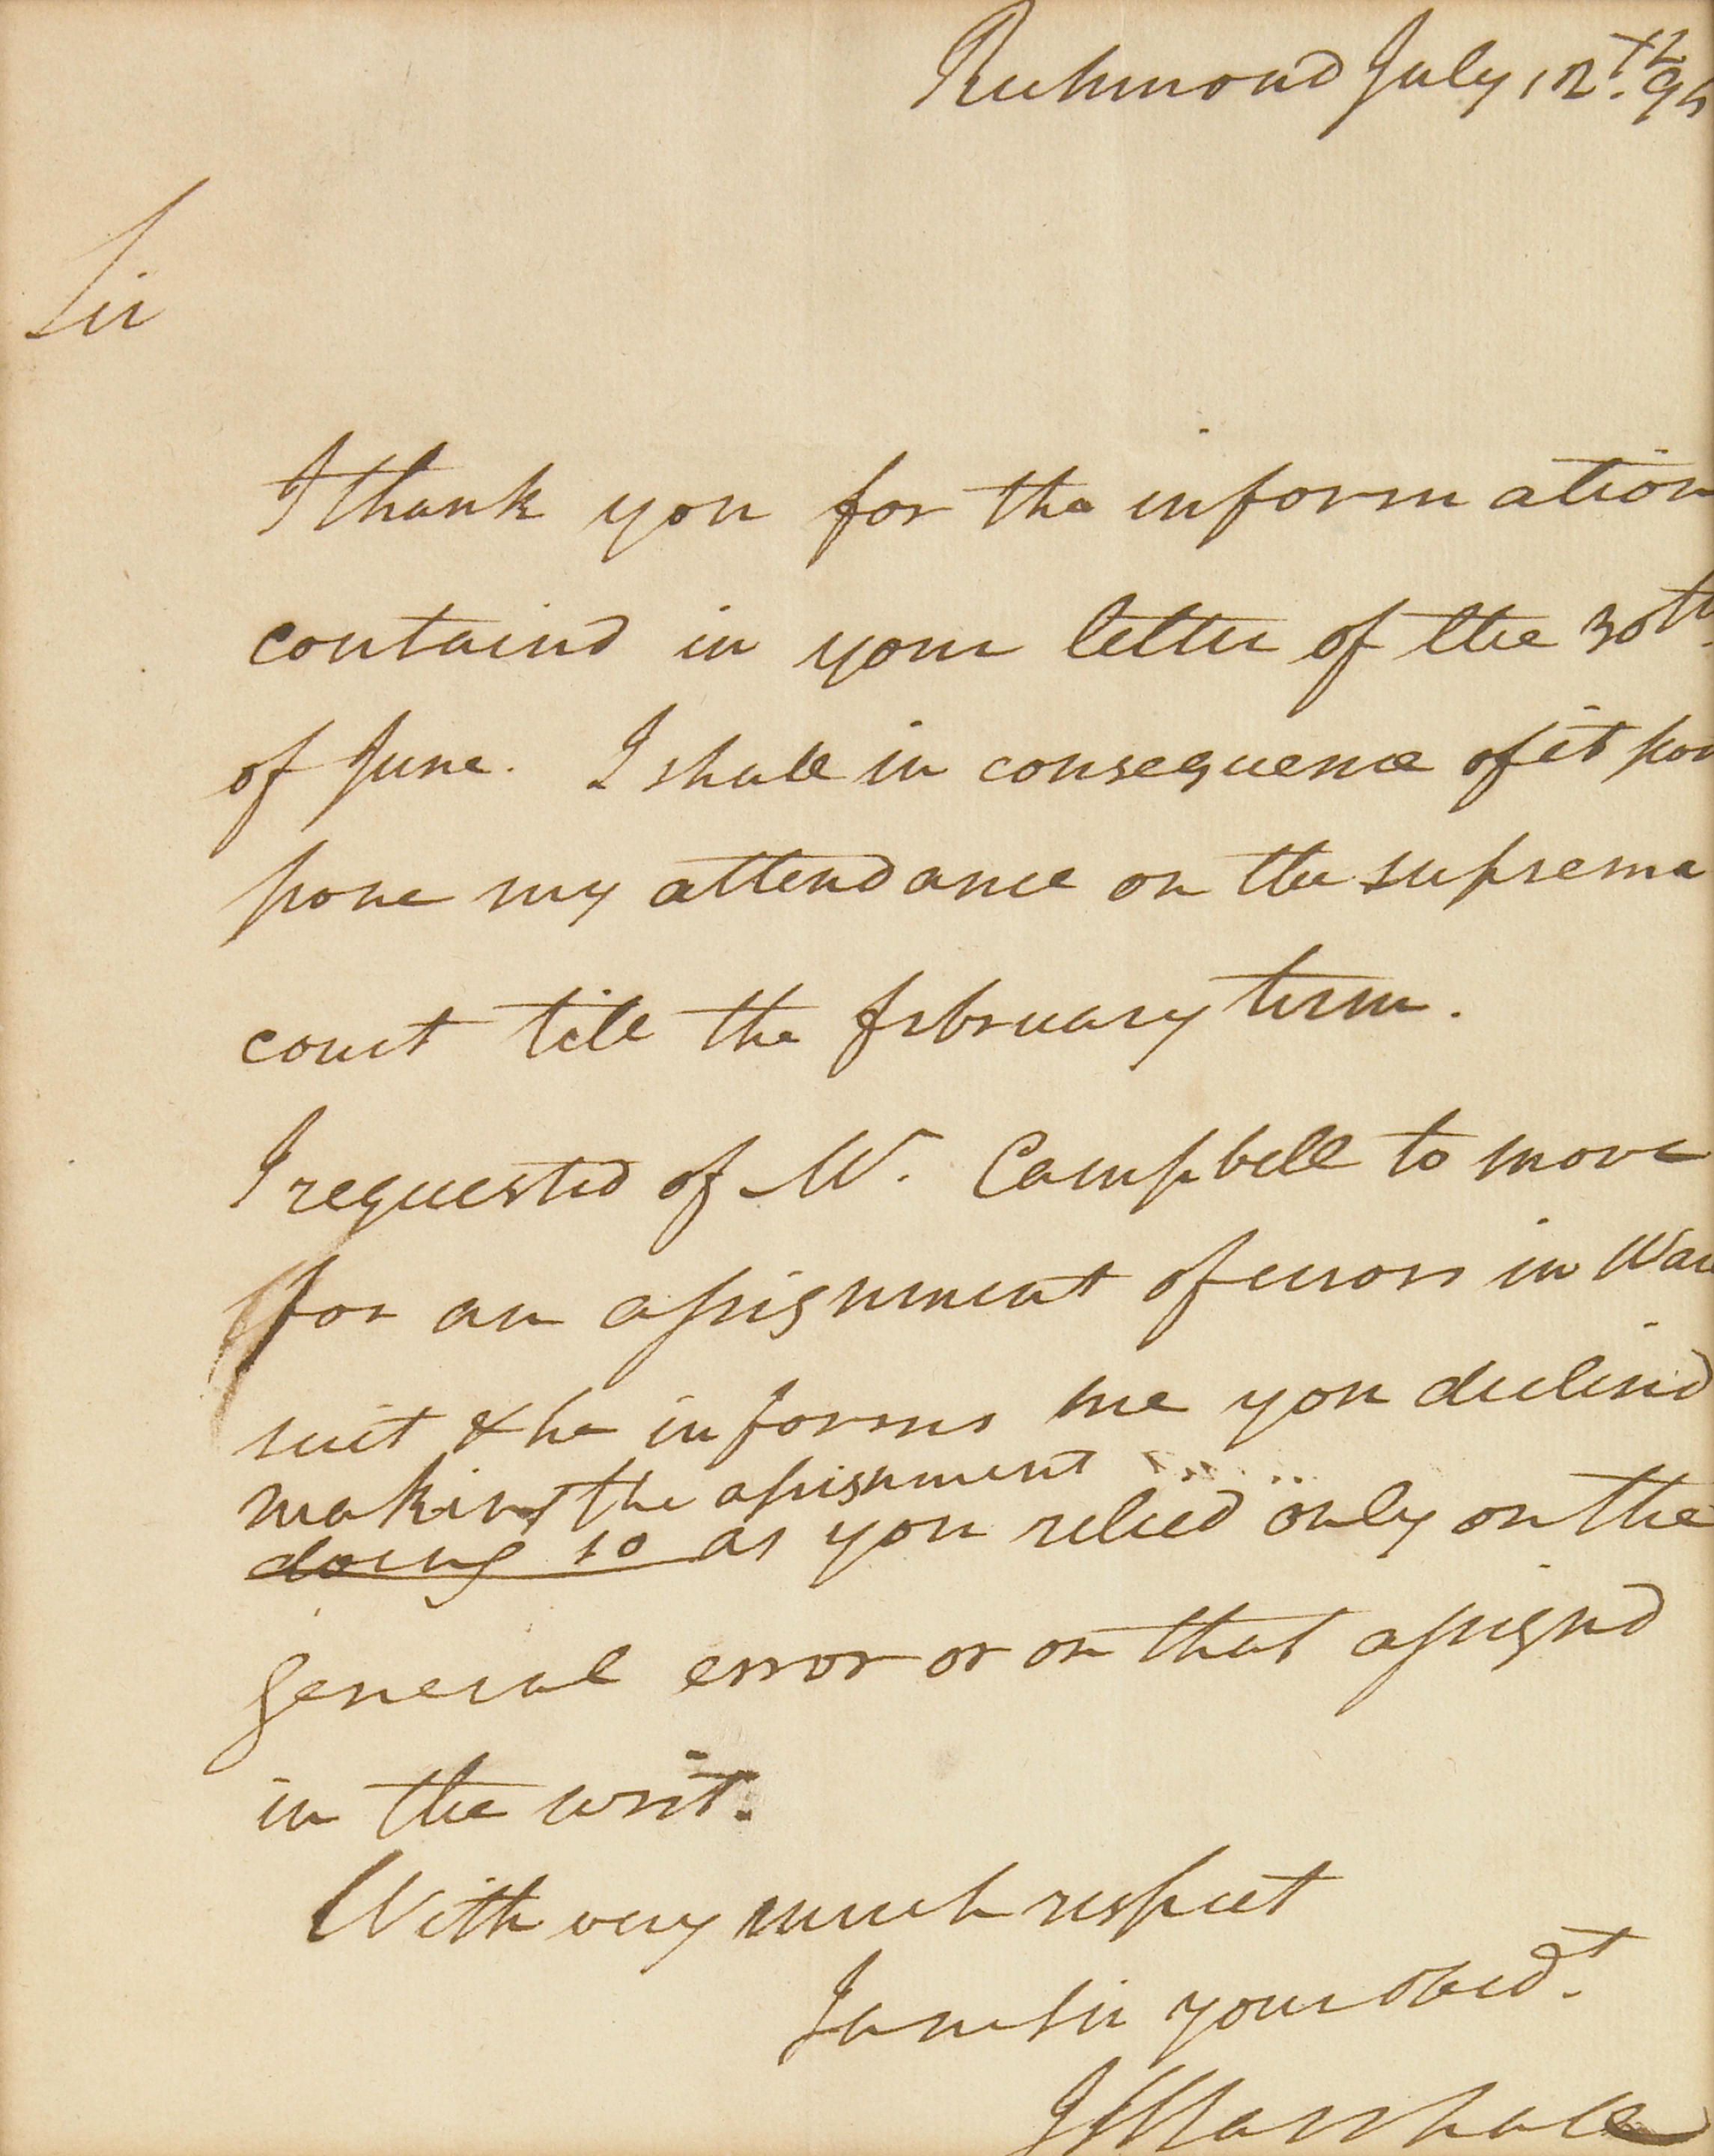 Richmond July 12th. 95
Sir
I thank you for the information
containd in your letter of the 30th.
of June. I shall in consequence of it pos
pone my attendance on the supreme
court till the february term.
I requested of Mr. Campbell to move
for an assignment of errors in War
suit & he informs me you declind
making the assignment
doing so as you relied only on the
general error or on that assignd
in the writ.
With very much respect
I am Sir your obed.t
J Marshall